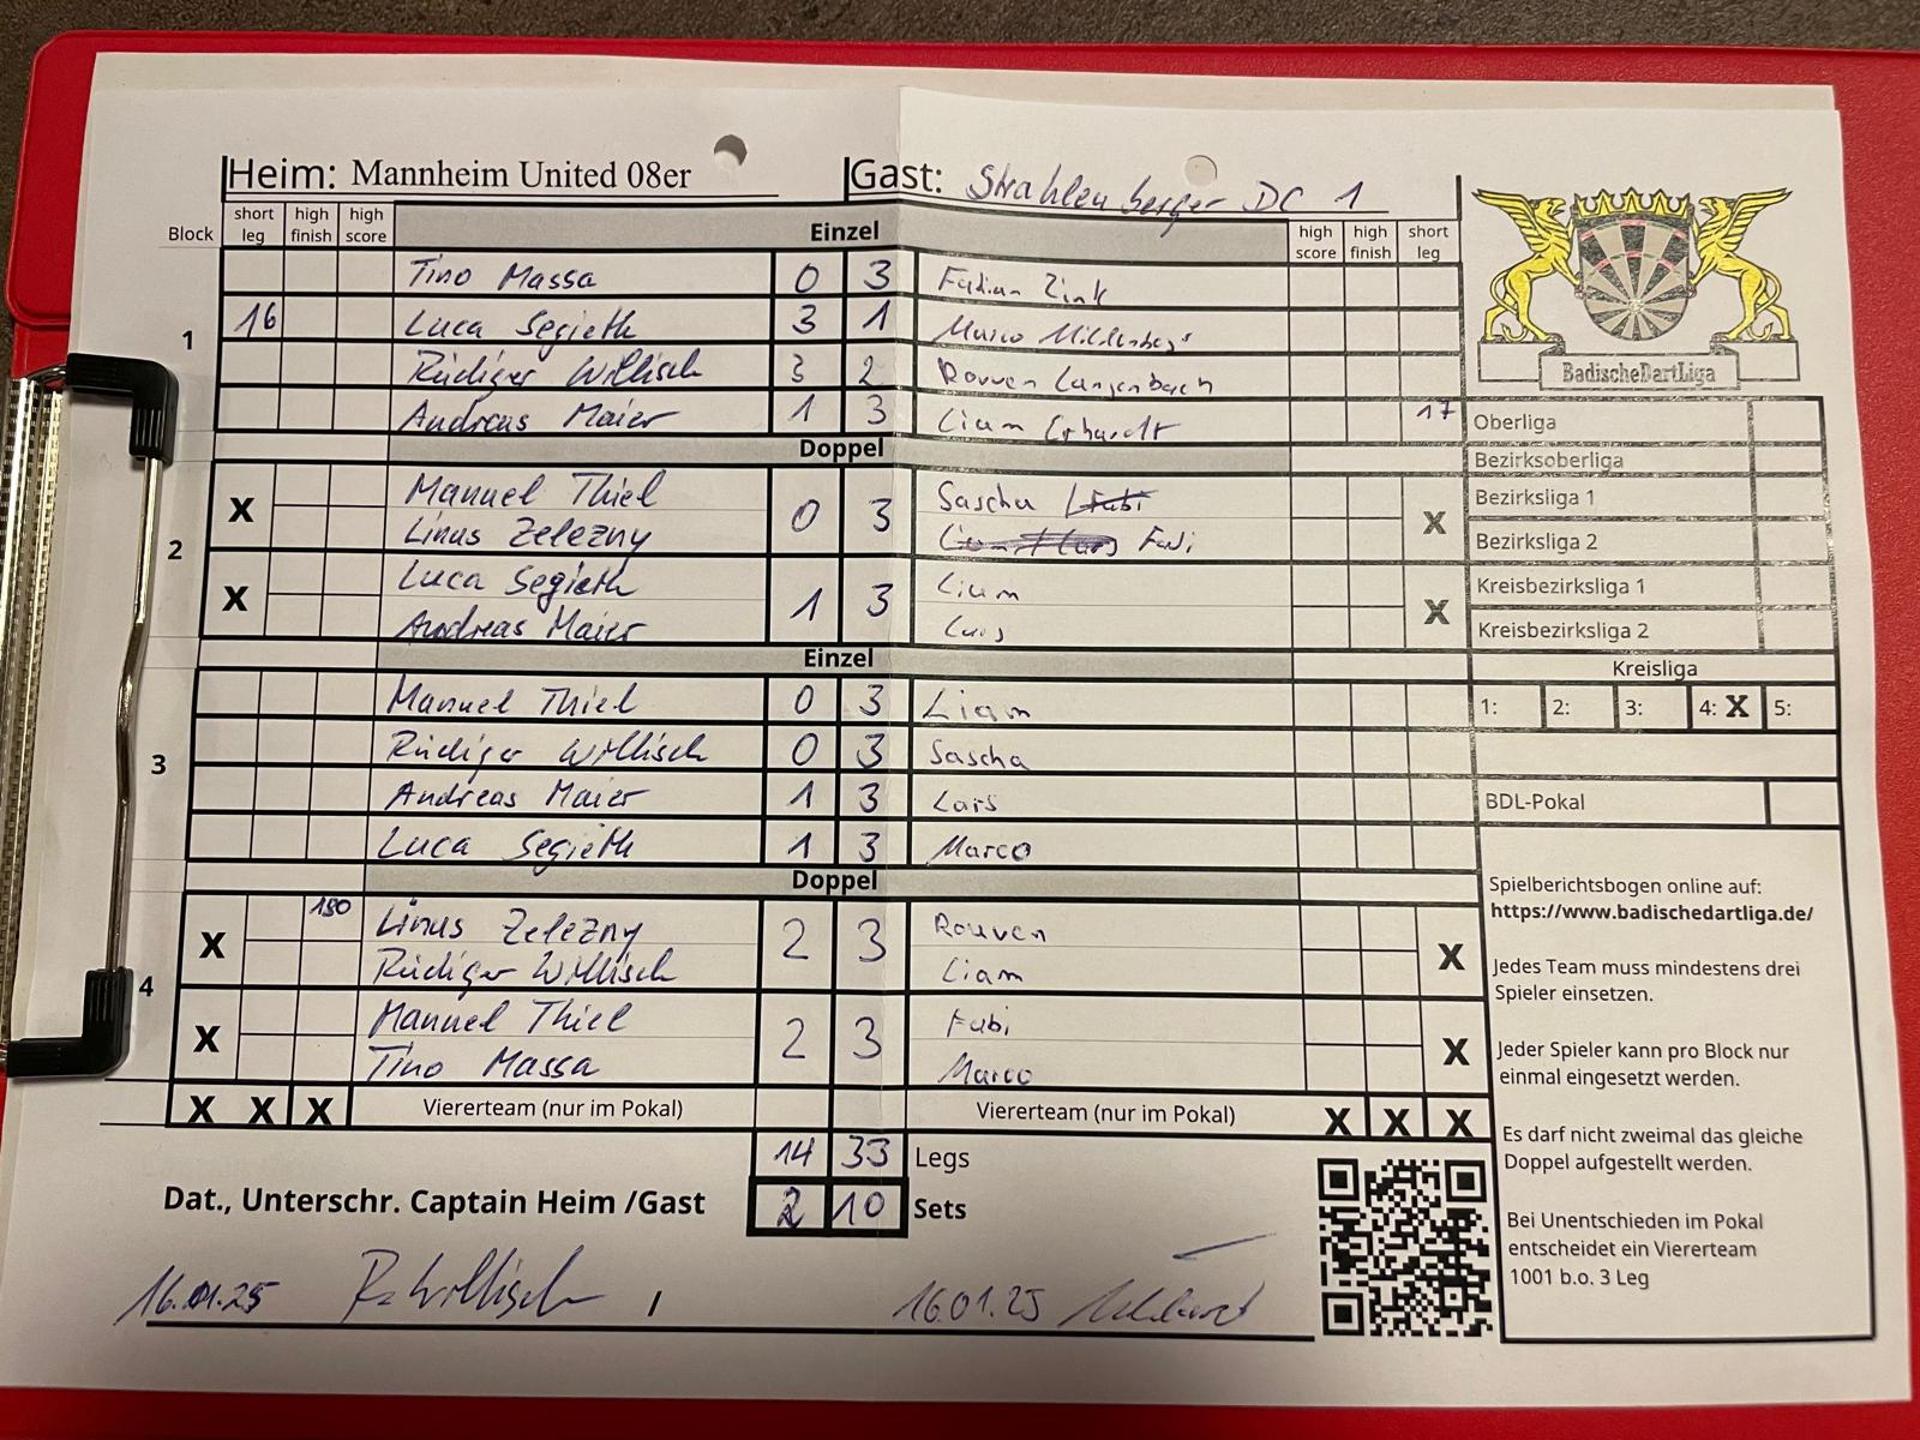 Heim: Mannheim United 08er Gast: Strahlenberger DC 1
Block short leg high finish high score Einzel high score high finish short leg
1
Tino Massa 0 3 Fabian Zink
16 Luca Segieth 3 1 Marco
Rüdiger Willisch 3 2 Rouven Langenbach
Andreas Maier 1 3 Liam Erhardt 17
Doppel
2
X Manuel Thiel 0 3 Sascha X
Linus Zelezny Fabi
X Luca Segieth 1 3 Liam X
Andreas Maier Lars
Einzel
3
Manuel Thiel 0 3 Liam
Rüdiger Willisch 0 3 Sascha
Andreas Maier 1 3 Lars
Luca Segieth 1 3 Marco
Doppel
4
X 180 Linus Zelezny 2 3 Rouven X
Rüdiger Willisch Liam
X Manuel Thiel 2 3 Fabi X
Tino Massa Marco
X X X Viererteam (nur im Pokal) Viererteam (nur im Pokal) X X X
14 33 Legs
Dat., Unterschr. Captain Heim /Gast 2 10 Sets
16.01.25 R. Willisch / 16.01.25
BadischeDartLiga
Oberliga
Bezirksoberliga
Bezirksliga 1
Bezirksliga 2
Kreisbezirksliga 1
Kreisbezirksliga 2
Kreisliga
1: 2: 3: 4: X 5:
BDL-Pokal
Spielberichtsbogen online auf:
https://www.badischedartliga.de/
Jedes Team muss mindestens drei
Spieler einsetzen.
Jeder Spieler kann pro Block nur
einmal eingesetzt werden.
Es darf nicht zweimal das gleiche
Doppel aufgestellt werden.
Bei Unentschieden im Pokal
entscheidet ein Viererteam
1001 b.o. 3 Leg